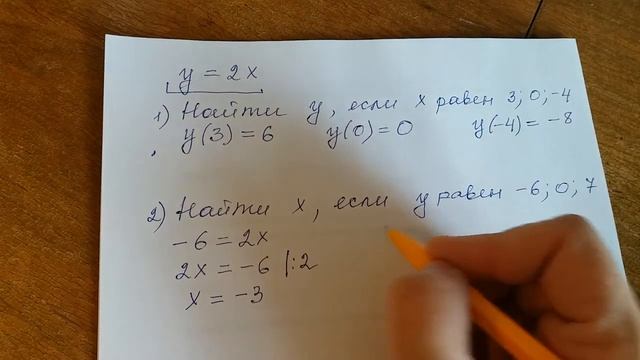 y = 2x
1) Найти y, если x равен 3; 0; -4
y(3) = 6 y(0) = 0 y(-4) = -8
2) Найти x, если y равен -6; 0; 7
-6 = 2x
2x = -6 |:2
x = -3